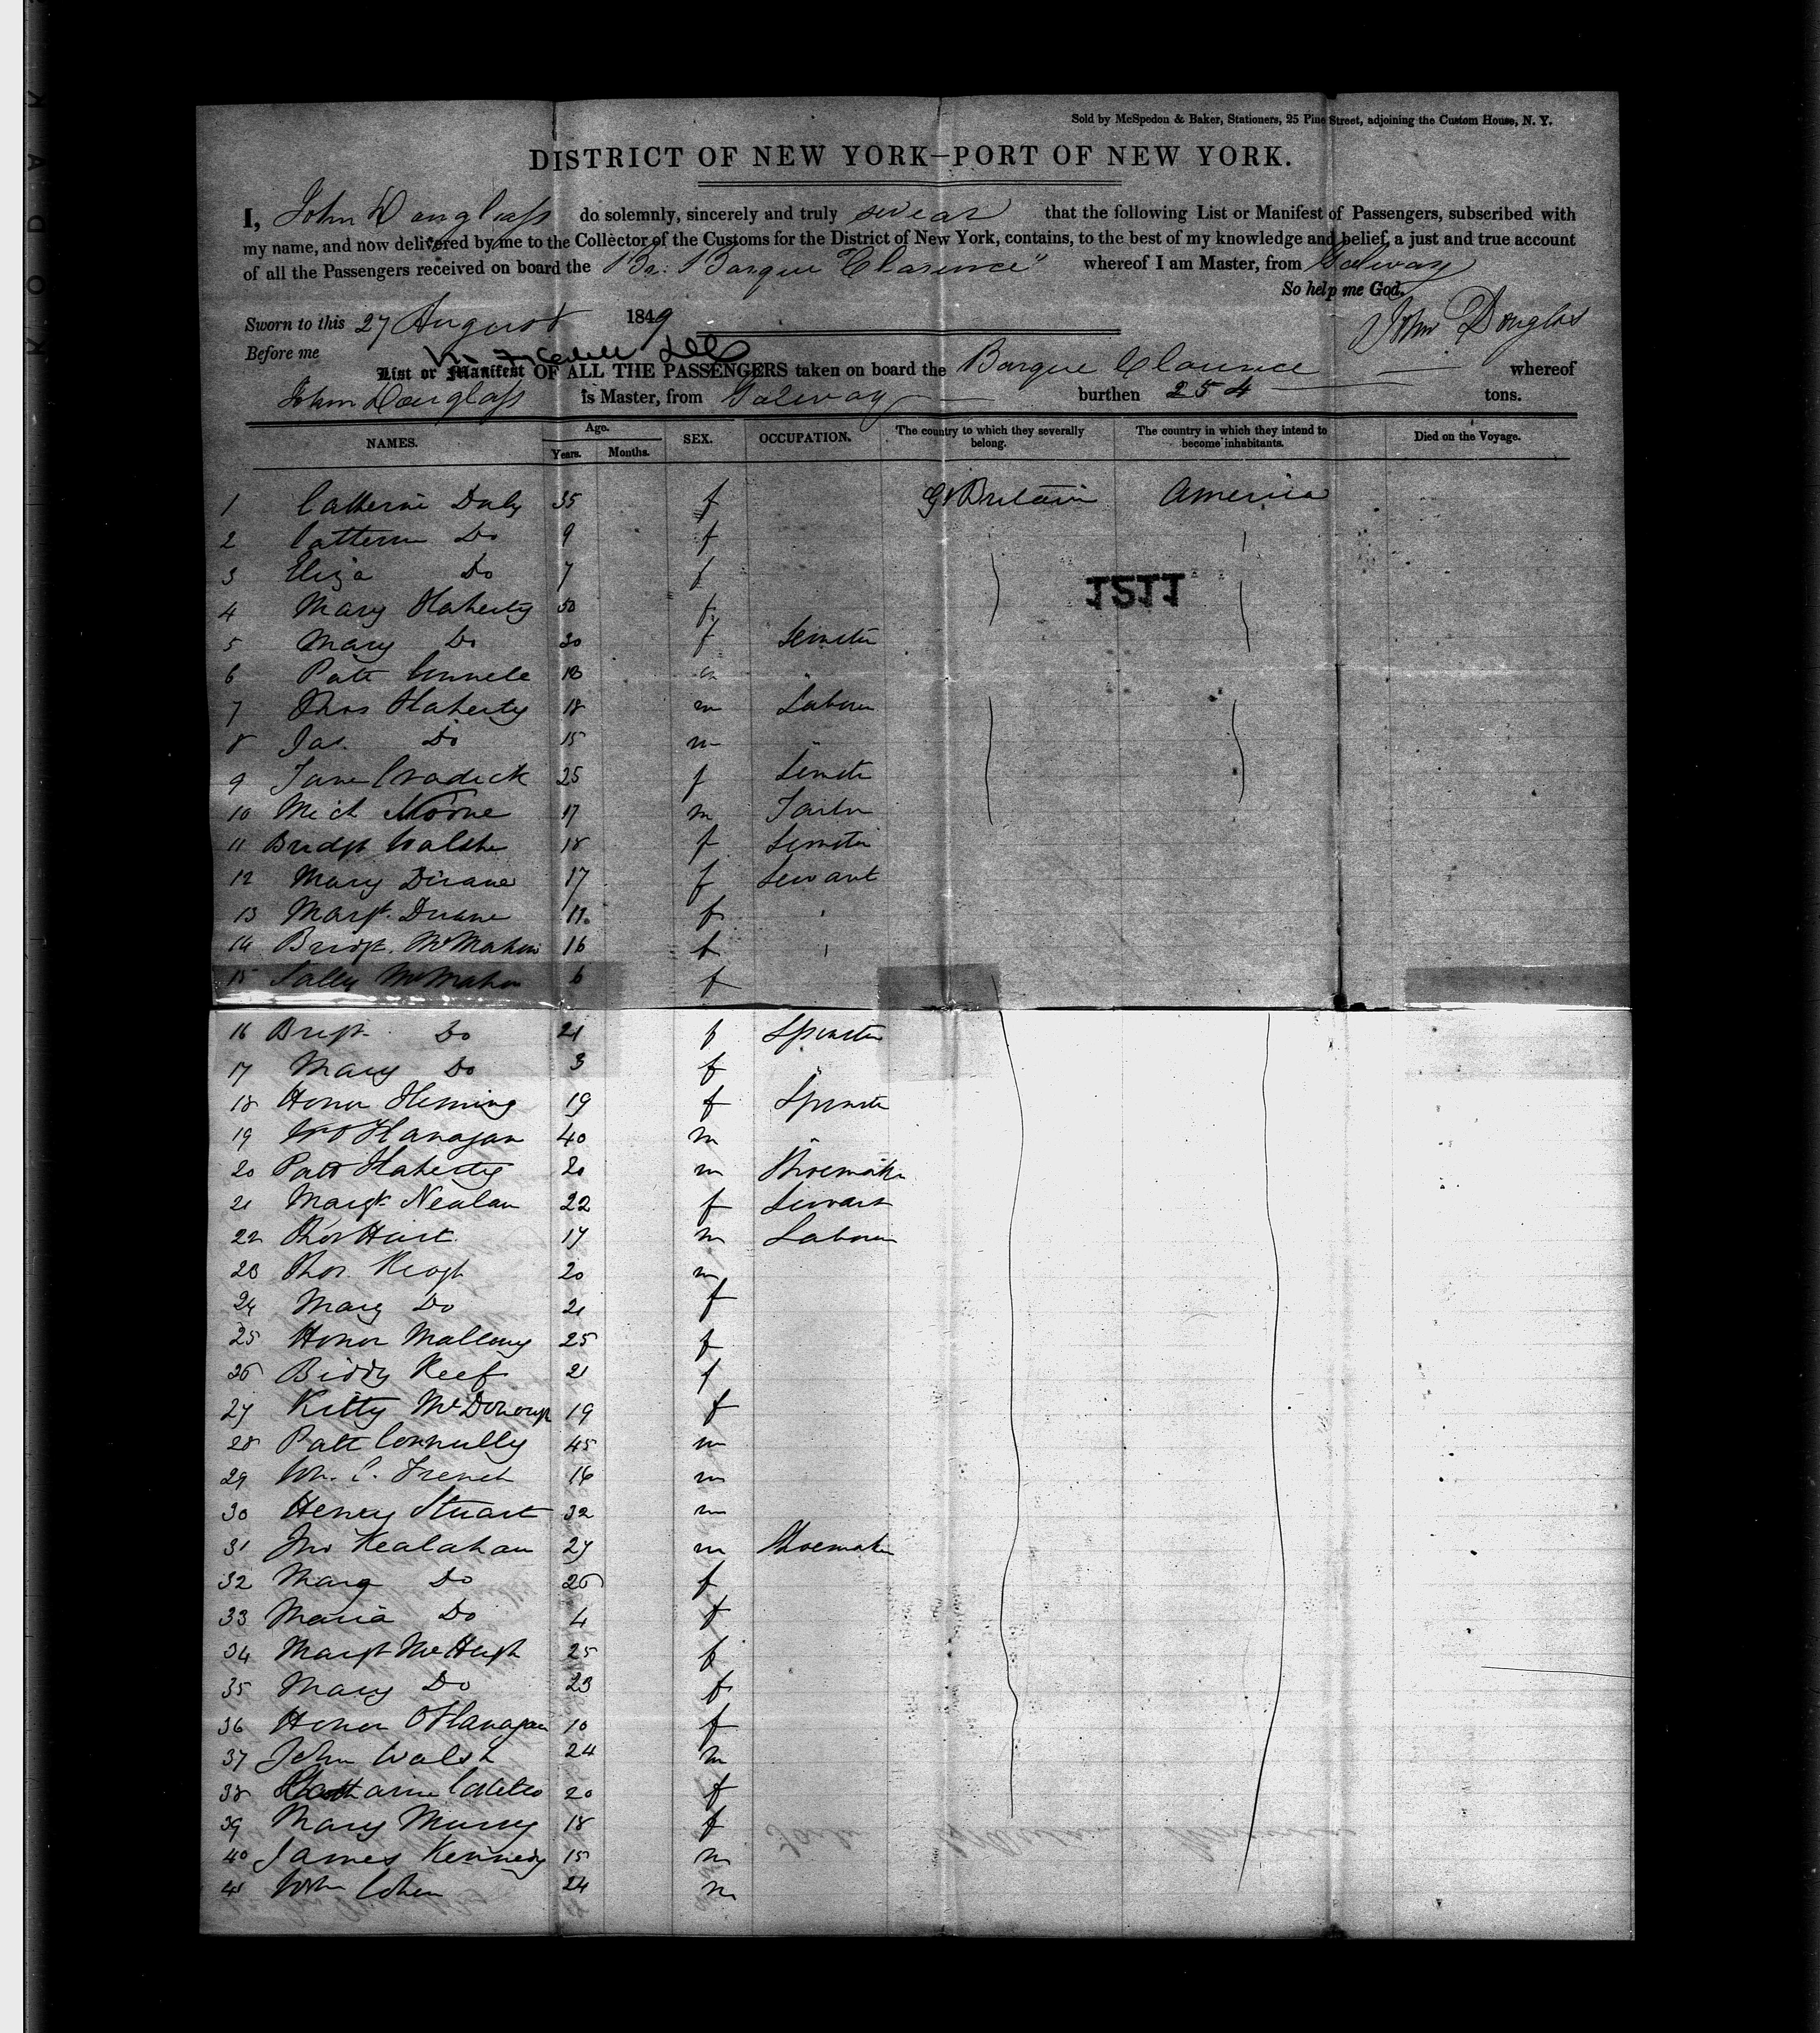 KODAK
Sold by McSpedon & Baker, Stationers, 25 Pine Street, adjoining the Custom House, N. Y.
DISTRICT OF NEW YORK—PORT OF NEW YORK.
I, John Douglass do solemnly, sincerely and truly swear that the following List or Manifest of Passengers, subscribed with
my name, and now delivered by me to the Collector of the Customs for the District of New York, contains, to the best of my knowledge and belief, a just and true account
of all the Passengers received on board the Br. Barque "Clarence" whereof I am Master, from Galway
So help me God.
Sworn to this 27 August 1849 John Douglas
Before me
List or Manifest OF ALL THE PASSENGERS taken on board the Barque Clarence whereof
John Douglass is Master, from Galway burthen 254 tons.
NAMES. Age. Years. Months. SEX. OCCUPATION. The country to which they severally belong. The country in which they intend to become inhabitants. Died on the Voyage.
1 Catherine Daly 35 f Gt Britain America
2 Catherine Do 9 f
3 Eliza Do 7 f
1211
4 Mary Flaherty 50 f
5 Mary Do 30 f
6 Patt 18 m "
7 Thos Flaherty 18 m Labourer
8 Jas. Do 15 m "
9 Jane Cradick 25 f
10 Mich Moore 17 m Tailor
11 Bridgt Walshe 18 f
12 Mary Dirane 17 f Servant
13 Margt. Duane 11. f
14 Bridgt. McMahon 16 f
15 Sally McMahon 6 f
16 Bregt. Do 21 f Spinster
17 Mary Do 3 f "
18 Honor Fleming 19 f Spinster
19 Flanagan 40 m "
20 Patt Flaherty 20 m Shoemaker
21 Margt Nealan 22 f Servant
22 Thos Hart 17 m Labourer
23 Thos. Keogh 20 m
24 Mary Do 21 f
25 Honor Mallony 25 f
26 Biddy Keef 21 f
27 Kitty McDonough 19 f
28 Patt Connully 45 m
29 Wm. C. French 16 m
30 Henry Stuart 32 m
31 Jno Kealahan 27 m Shoemaker
32 Mary Do 26 f
33 Maria Do 4 f
34 Margt McHugh 25 f
35 Mary Do 23 f
36 Honor O Flanagan 10 f
37 John Walsh 24 m
38 Catharine 20 f
39 Mary Murry 18 f
40 James Kennedy 15 m
41 Cohen 24 m